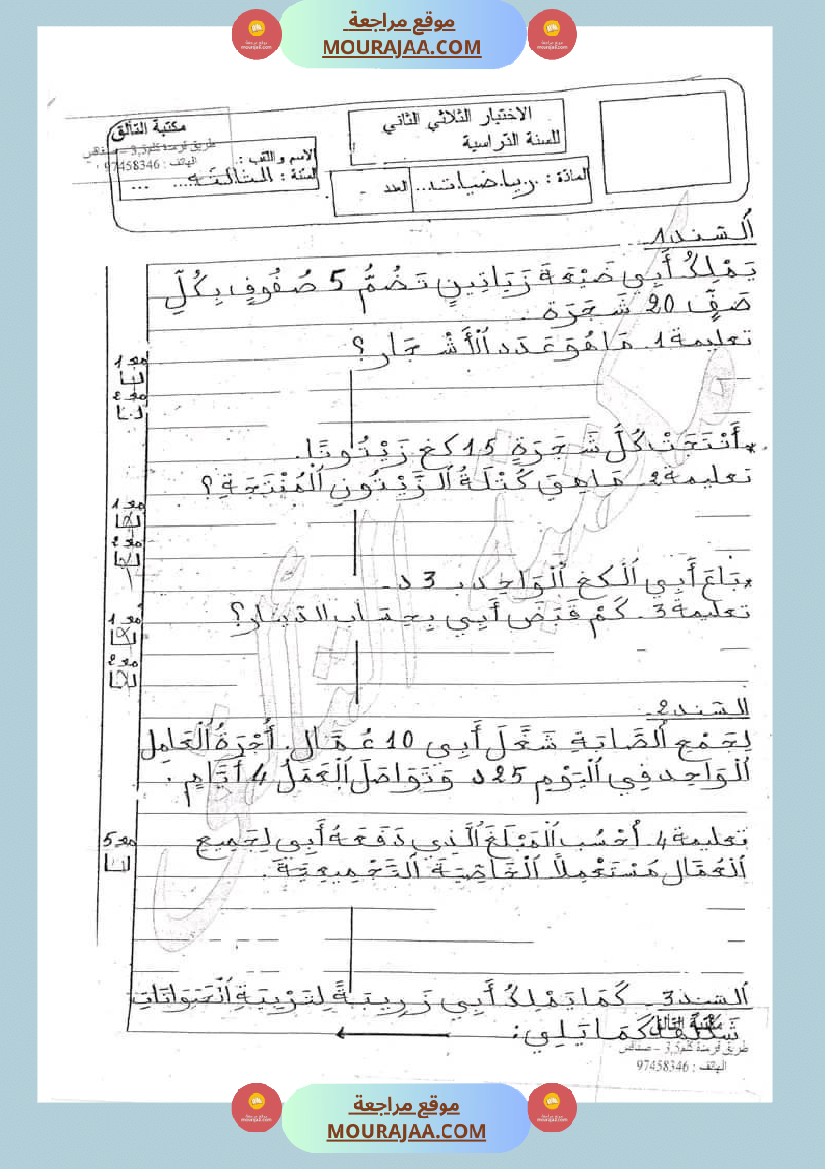 موقع مراجعة
MOURAJAA.COM
مكتبة التألق
طريق قرمدة كلم 3,5 – صفاقس
الهاتف : 97458346
الاختبار الثلاثي الثاني
للسنة الدراسية
الاسم و اللقب :
السنة : الثالثة
المادة : رياضيات
العدد
السند 1
يَمْلِكُ أَبِي ضَيْعَةَ زَيَاتِينٍ تَضُمُّ 5 صُفُوفٍ بِكُلِّ
صَفٍّ 20 شَجَرَة .
تعليمة 1. مَا هُوَ عَدَد اْلأَشْجَار؟
مع 1
مع 2
* أَنْتَجَتْ كُلُّ شَجَرَةٍ 15 كغ زَيْتُونًا.
تعليمة 2. مَا هِيَ كُتْلَةُ الزَّيْتُونِ الْمُنْتَجَةِ؟
مع 1
مع 2
* بَاعَ أَبِي الْكغ الْوَاحِد بـ 3 د.
تعليمة 3. كَمْ قَبَضَ أَبِي بِحِسَاب الدينار؟
مع 1
مع 2
السند 2.
لِجَمْعِ الصَّابَةِ شَغَّلَ أَبِي 10 عُمَّال. أُجْرَةُ الْعَامِل
الْوَاحِد فِي الْيَوْمِ 25 د وَتَوَاصَلَ الْعَمَلُ 4 أَيَّامٍ .
تعليمة 4. اُحْسُب الْمَبْلَغَ الَّذِي دَفَعَهُ أَبِي لِجَمِيعِ
الْعُمَّال مُسْتَعْمِلاً الْخَاصِّيَة التَّجْمِيعِيَّة .
مع 5
السند 3. كَمَا يَمْلِكُ أَبِي زَرِيبَةً لِتَرْبِيَةِ الْحَيَوَانَاتِ
شَكْلُهَا كَمَا يَلِي:
مكتبة التألق
طريق قرمدة كلم 3,5 – صفاقس
الهاتف : 97458346
موقع مراجعة
MOURAJAA.COM